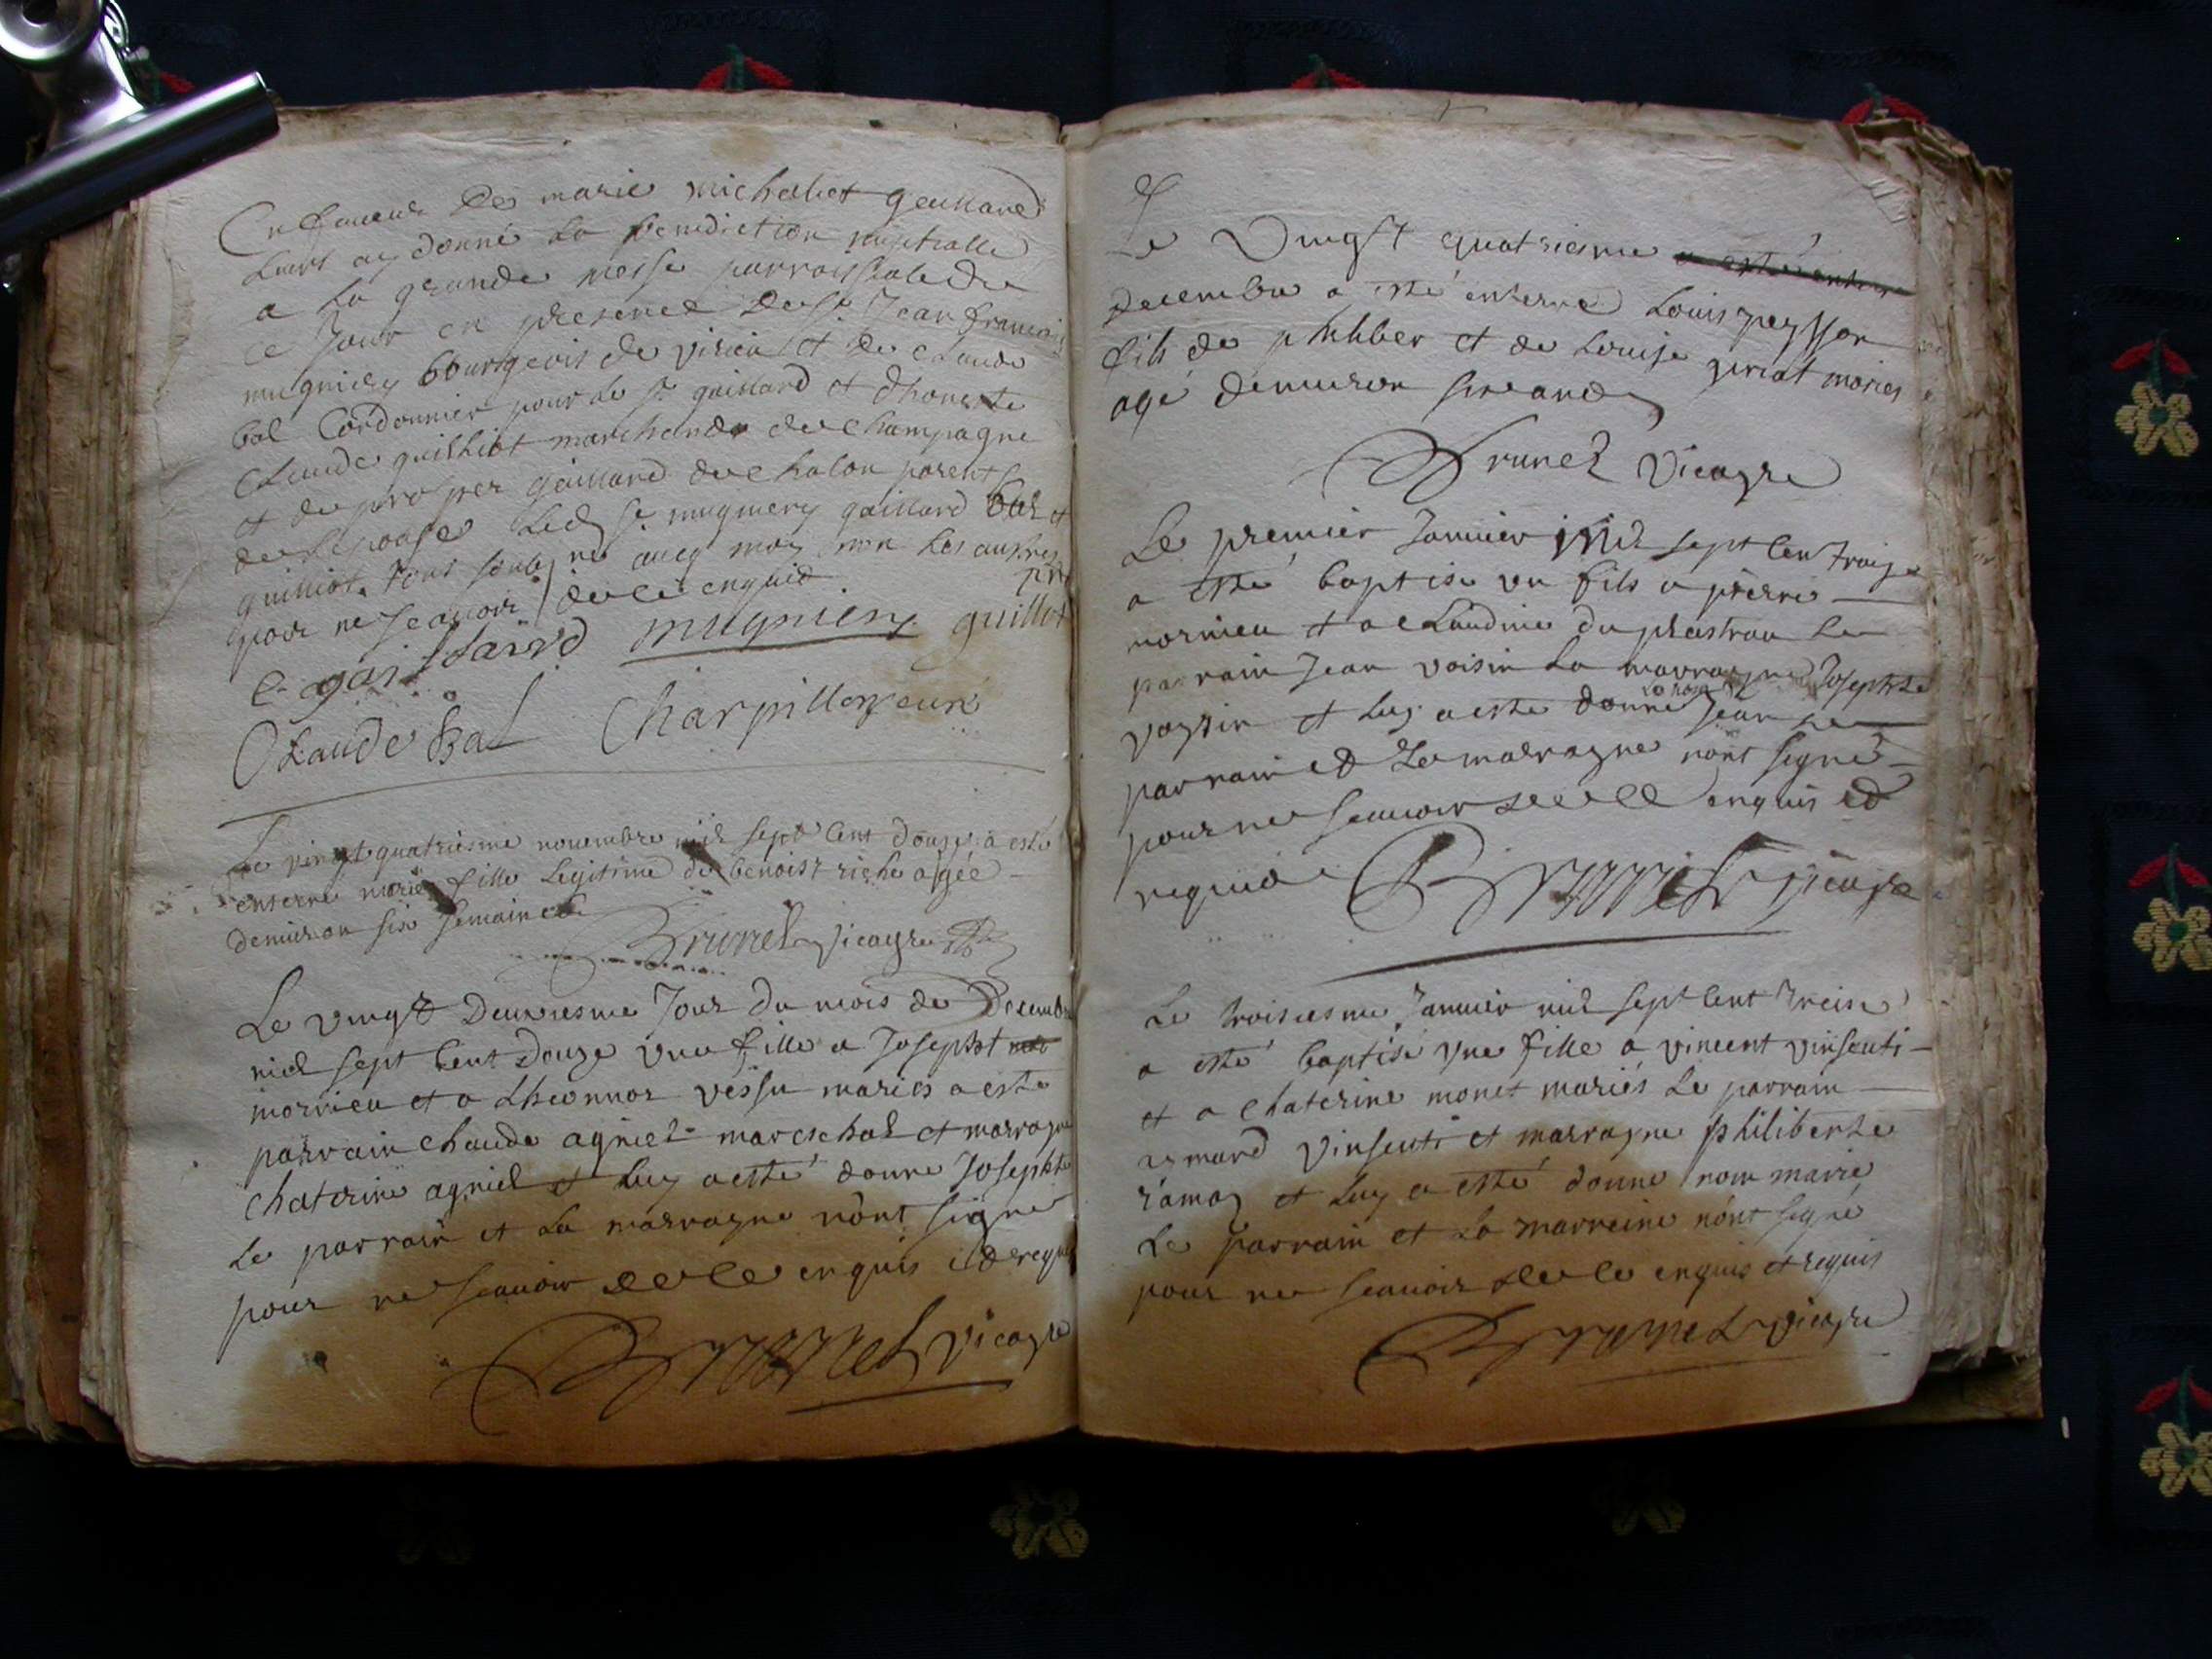 En faueur de marie michaliet gaillard
leurs ay donné la benediction nuptialle
a la grande messe parroissiale de
ce Jour en presence de Sr Jean francois
mugniery bourgeois de virieu et de claude
bal Cordonnier pour le Sr gaillard et d'honeste
Claude guilliot marchand de champagne
et de prosper gaillard de chalon parents
de l'epouse Led Sr mugniery gaillard bal et
guilliot tous soubs né aueq moy non les autres
pour ne scauoir de ce enquis
C gaillard mugniery guilliot
Claude Bal Charpillon cure
Le vingt quatriesme nouembre mil sept cent douse a esté
enterré marie fille legitime de benoist riche agée
denuiron six semaines
Brunel vicayre
Le vingt deuxiesme Jour du mois de Decembre
mil sept cent douze vne fille a Josepht
mornieu et a Lheonnor vessu mariés a esté
parrain claude agniel mareschal et marrayne
chaterine agniel et luy a esté donné Josephte
Le parrain et la marrayne n'ont signé
pour ne scauoir de ce enquis et requis
Brunel vicayre
Le Vingt quatriesme a esté enterré
decembre a esté enterré Louis peysson
fils de philiber et de Louise priat mariés
agé denuiron six ans
Brunel vicayre
Le premier Januier mil sept cen traize
a esté baptise vn fils a pierre
mornieu et a claudine du plastrau le
parrain Jean voisin la marrayne Josephte
voysin et luy a esté donné le nom Jean le
parrain et la marrayne n'ont signé
pour ne scauoir de ce enquis et
requis Brunel vicayre
Le troisiesme Januier mil sept cent treise
a esté baptisé vne fille a vincent vinsenti
et a chaterine monet mariés Le parrain
aymard vinsenti et marrayne philiberte
ramoz et luy a esté donné nom marie
Le parrain et la marreine n'ont signé
pour ne scauoir de ce enquis et requis
Brunel vicayre